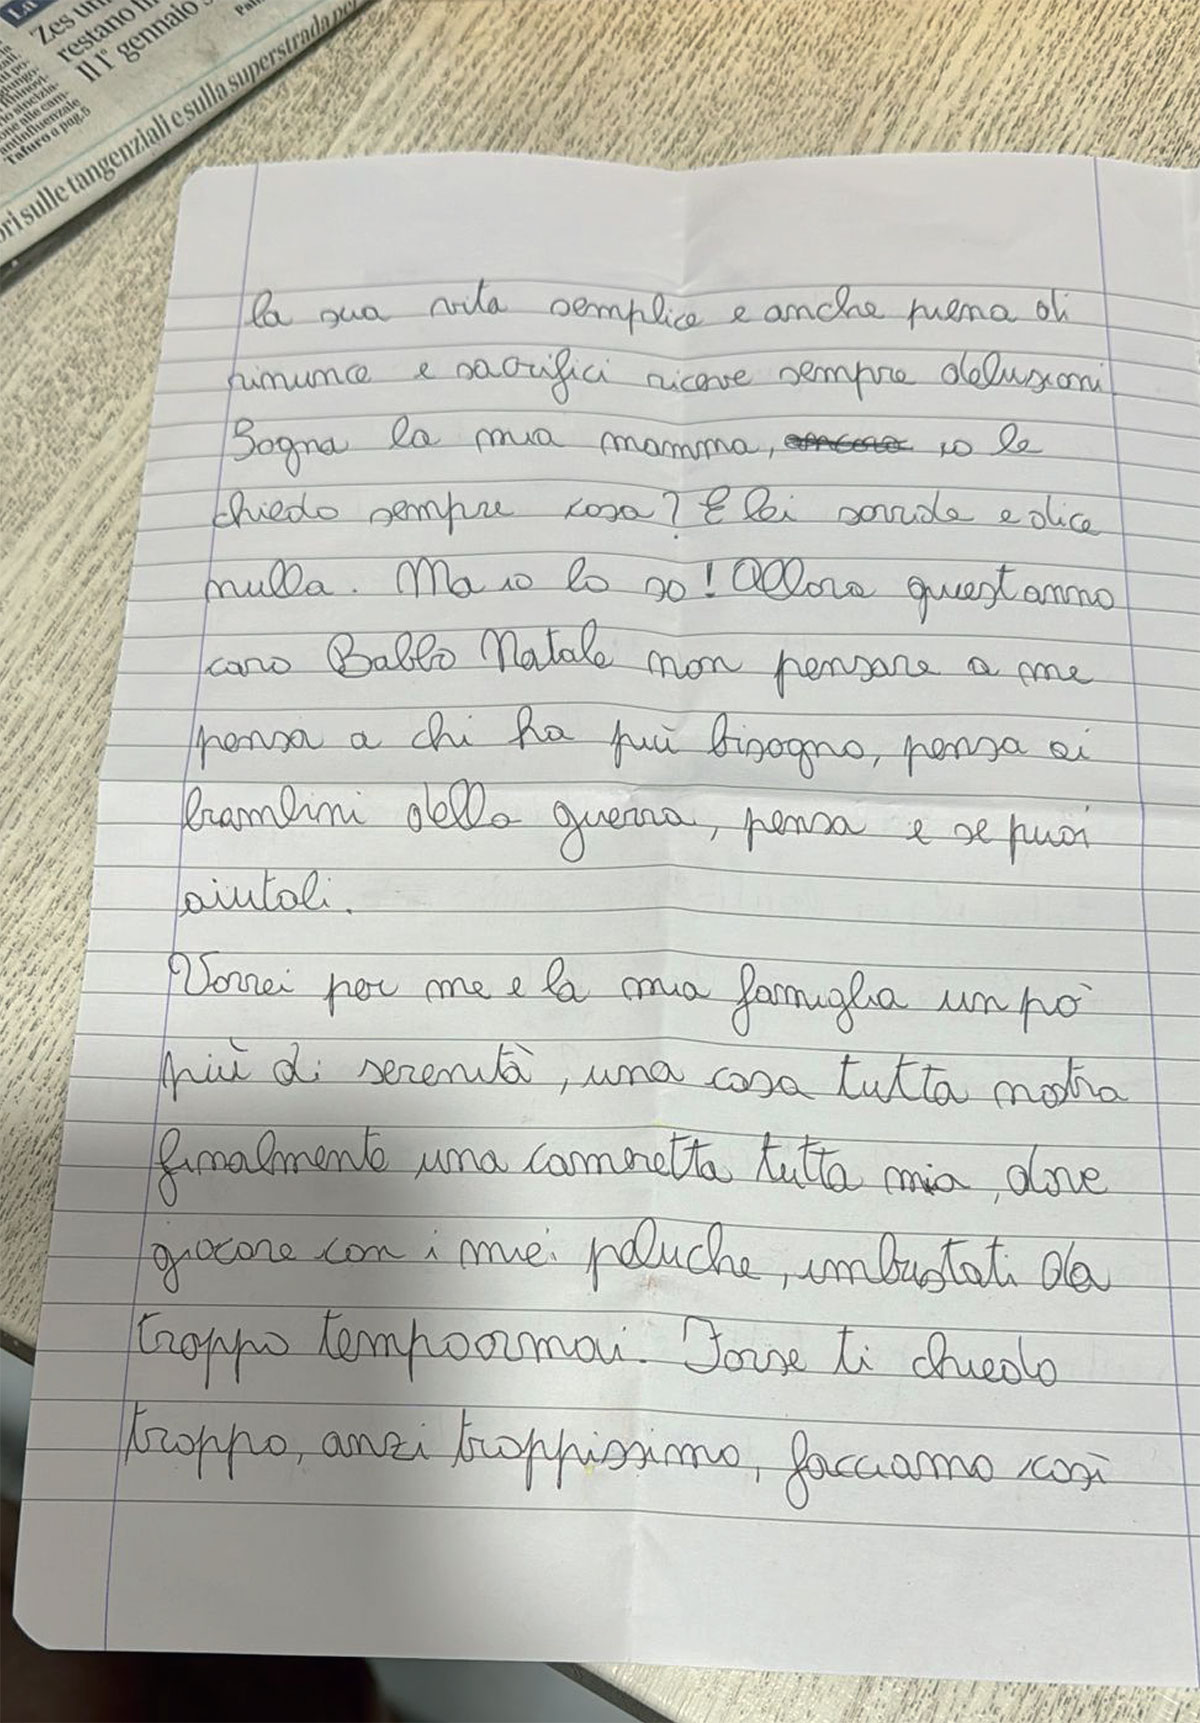 "Zes un
restano in
Il 1° gennaio
antinfluenzale
Tafuro a pag.5
ori sulle tangenziali e sulla superstrada per
la sua vita semplice e anche piena di
rinunce e sacrifici riceve sempre delusioni
Sogna la mia mamma, io le
chiedo sempre cosa? E lei sorride e dice
nulla. Ma io lo so! Allora quest anno
caro Babbo Natale non pensare a me
pensa a chi ha più bisogno, pensa ai
brambini della guerra, pensa e se puoi
aiutali.
Vorrei per me e la mia famiglia un pò
più di serenità, una casa tutta nostra
finalmente una cameretta tutta mia, dove
giocare con i miei peluche, imbustati da
troppo tempo ormai. Forse ti chiedo
troppo, anzi troppissimo, facciamo così